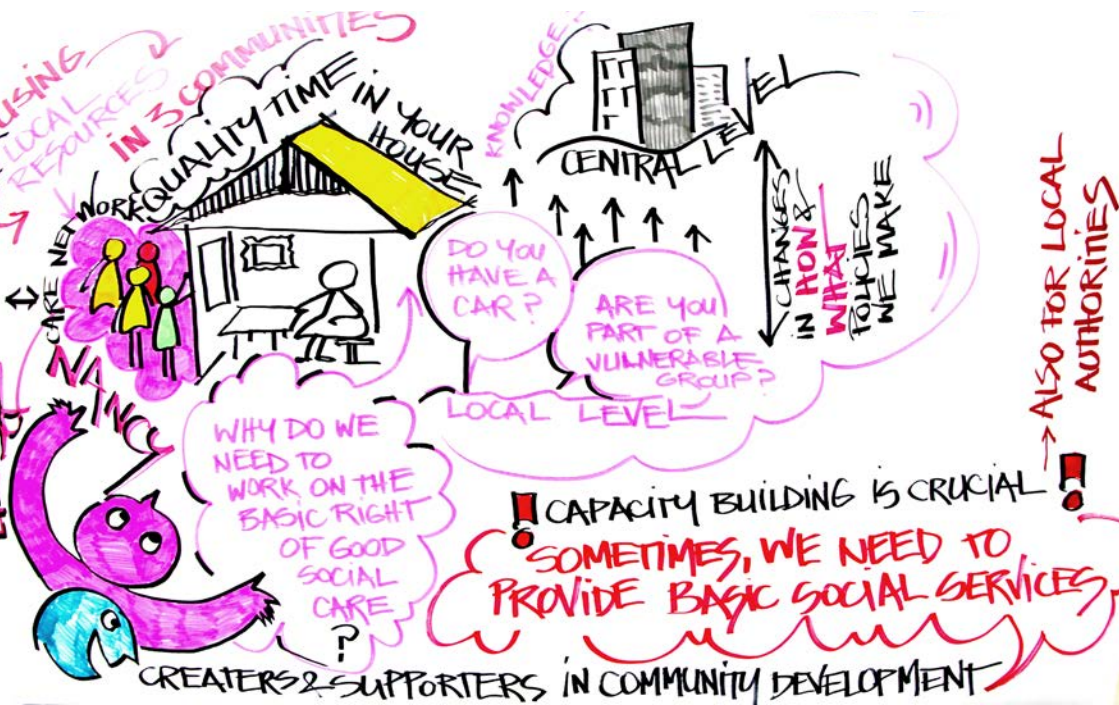 USING
LOCAL
RESOURCES
IN 3 COMMUNITIES
CARE NETWORK
QUALITY TIME IN YOUR
HOUSE
KNOWLEDGE
CENTRAL LEVEL
CHANGES
IN HOW &
WHAT
POLICIES
WE MAKE
DO YOU
HAVE A
CAR?
ARE YOU
PART OF A
VULNERABLE
GROUP?
LOCAL LEVEL
→ ALSO FOR LOCAL
AUTHORITIES
NANCY
WHY DO WE
NEED TO
WORK ON THE
BASIC RIGHT
OF GOOD
SOCIAL
CARE
?
! CAPACITY BUILDING IS CRUCIAL !
SOMETIMES, WE NEED TO
PROVIDE BASIC SOCIAL SERVICES
CREATERS & SUPPORTERS IN COMMUNITY DEVELOPMENT